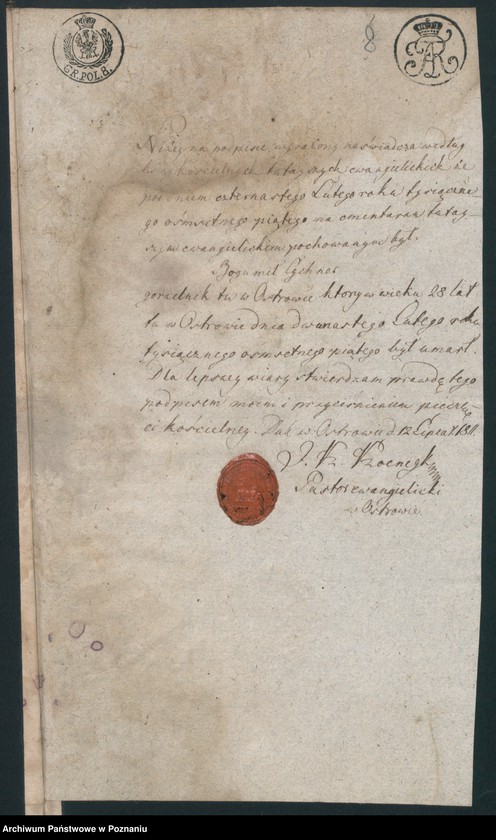 GR.POL.8.
8
Niżey na podpisie wyrażony zaświadcza według
kościelnych tutayszych ewangielickich że
pod dniem czternastego Lutego roku tysiączne-
go ośmsetnego piątego na cmentarzu tutay-
szym ewangielickiem pochowanym był.
Bogumił
gorzelnik tu w Ostrowie ktory w wieku 28 lat
tu w Ostrowie dnia dwunastego Lutego roku
tysiącznego ośmsetnego piątego był umarł.
Dla lepszey wiary stwierdzam prawdę tego
podpisem moim i przyciśnieniem pieczę-
ci kościelney. Dat. w Ostrowie d. 12 Lipca 1811.
Pastor ewangielicki
w Ostrowie.
Archiwum Państwowe w Poznaniu